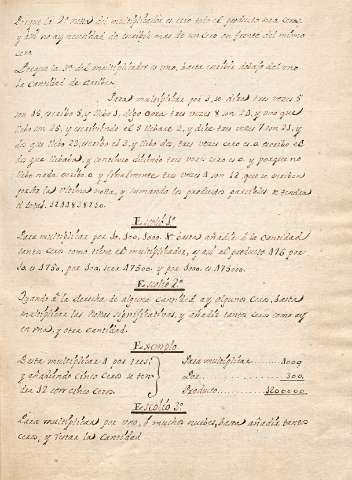 Porque la 2ª nota del multiplicador es cero todo el producto sera cero,
y assi no ay necesidad de escribir mas de un cero en frente del mismo
cero
Porque la 3ª del multiplicador es uno, basta escribir debajo del uno
la cantidad de arriba.
Para multiplicar por 3, se dira tres vezes 5
son 15, escribo 5, y llebo 1, digo
tres vezes 8 son 24, y uno que
llebo son 25, y escribiendo el 5 llebare 2, y dire tres vezes 7 son 21, y
dos que llebo 23, escribo el 3, y llebo dos, tres vezes cero es 0 escribo el
dos que llebaba, y concluyo diziendo tres vezes cero es 0 y porque no
llebo nada escribo 0 y finalmente tres vezes 4 son 12 que se escriben
por ser la ultima nota, y sumando los productos parciales se tendra
el total
Escolio 1º
Para multiplicar por 10, 100, 1000. &ª basta añadir à la cantidad
tantos ceros como tiene el multiplicador, y assi el producto de 75 por
10 es 750, por 100, sera 7500. y por 1000. es 75000.
Escolio 2º
Quando à la derecha de alguna cantidad ay algunos ceros, basta
multiplicar las notas significativas, y añadir tantos ceros como ay
en una, y otra cantidad.
Exemplo
Basta multiplicar 4 por tres:
y añadiendo cinco ceros se ten-
dra 12 con cinco ceros.
Para multiplicar ........ 4000
Por ........ 300
Producto ........ 1200000
Escolio 3º
Para multiplicar por uno, ò muchos nuebes, basta añadir tantos
ceros, y restar la cantidad